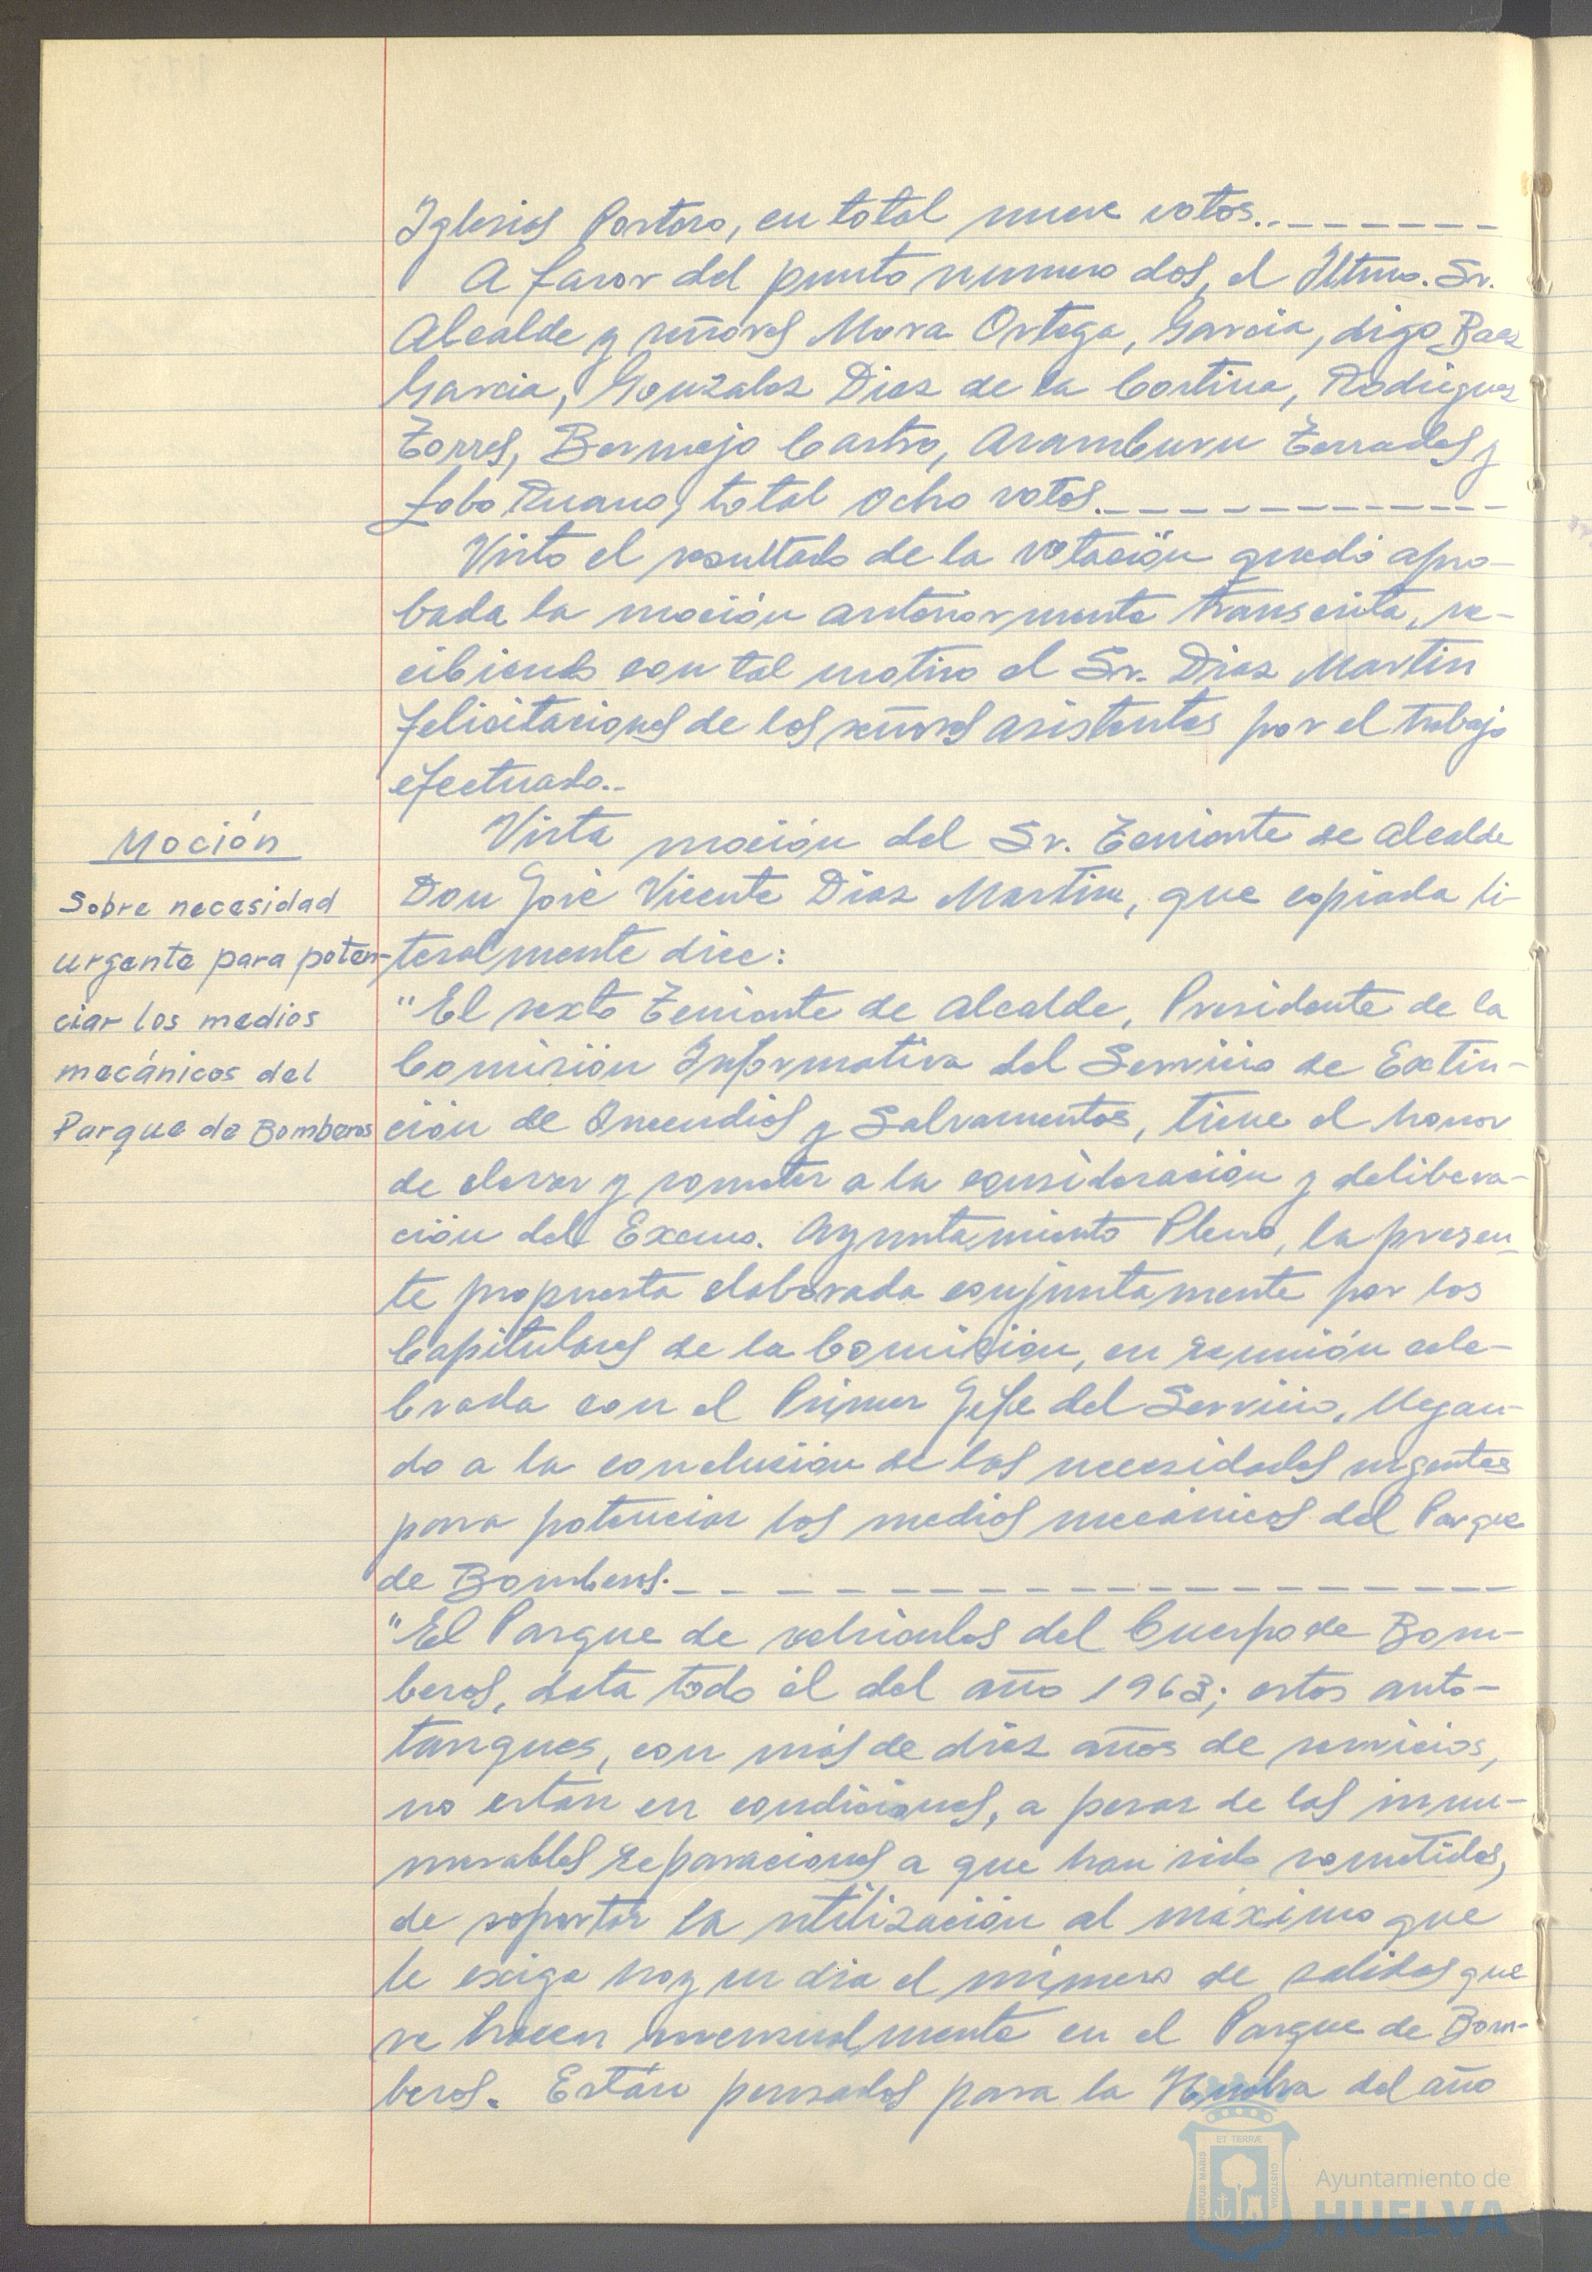 Iglesias Portero, en total nueve votos..-------
A favor del punto numero dos, el Iltmo. Sr.
Alcalde y señores Mora Ortega, Garcia, digo Baez
Garcia, Gonzalez Diez de la Cortina, Rodriguez
Torres, Bermejo Castro, Aramburu Terrades y
Lobo Ruano, total ocho votos.-------------
Visto el resultado de la votación quedó apro-
bada la moción anteriormente transcrita, re-
cibiendo con tal motivo el Sr. Diaz Martin
felicitaciones de los señores asistentes por el trabajo
efectuado..
Moción
Sobre necesidad
urgente para poten-
ciar los medios
mecánicos del
Parque de Bomberos
Vista moción del Sr. Teniente de Alcalde
Don José Vicente Diaz Martin, que copiada li-
teralmente dice:
"El sexto Teniente de Alcalde, Presidente de la
Comisión Informativa del Servicio de Extin-
ción de Incendios y Salvamentos, tiene el honor
de elevar y someter a la consideración y delibera-
ción del Excmo. Ayuntamiento Pleno, la presen-
te propuesta elaborada conjuntamente por los
Capitulares de la Comisión, en reunión cele-
brada con el Primer Jefe del Servicio, llegan-
do a la conclusión de las necesidades urgentes
para potenciar los medios mecánicos del Parque
de Bomberos.-------------------
"El Parque de vehiculos del Cuerpo de Bom-
beros, data todo él del año 1963; estos auto-
tanques, con más de diez años de servicios,
no estan en condiciones, a pesar de las innu-
merables reparaciones a que han sido sometidos,
de soportar la utilización al máximo que
le exige hoy en dia el número de salidas que
se hacen mensualmente en el Parque de Bom-
beros. Están pensados para la Huelva del año
PORTUS MARIS ET TERRÆ CUSTODIA
Ayuntamiento de
HUELVA